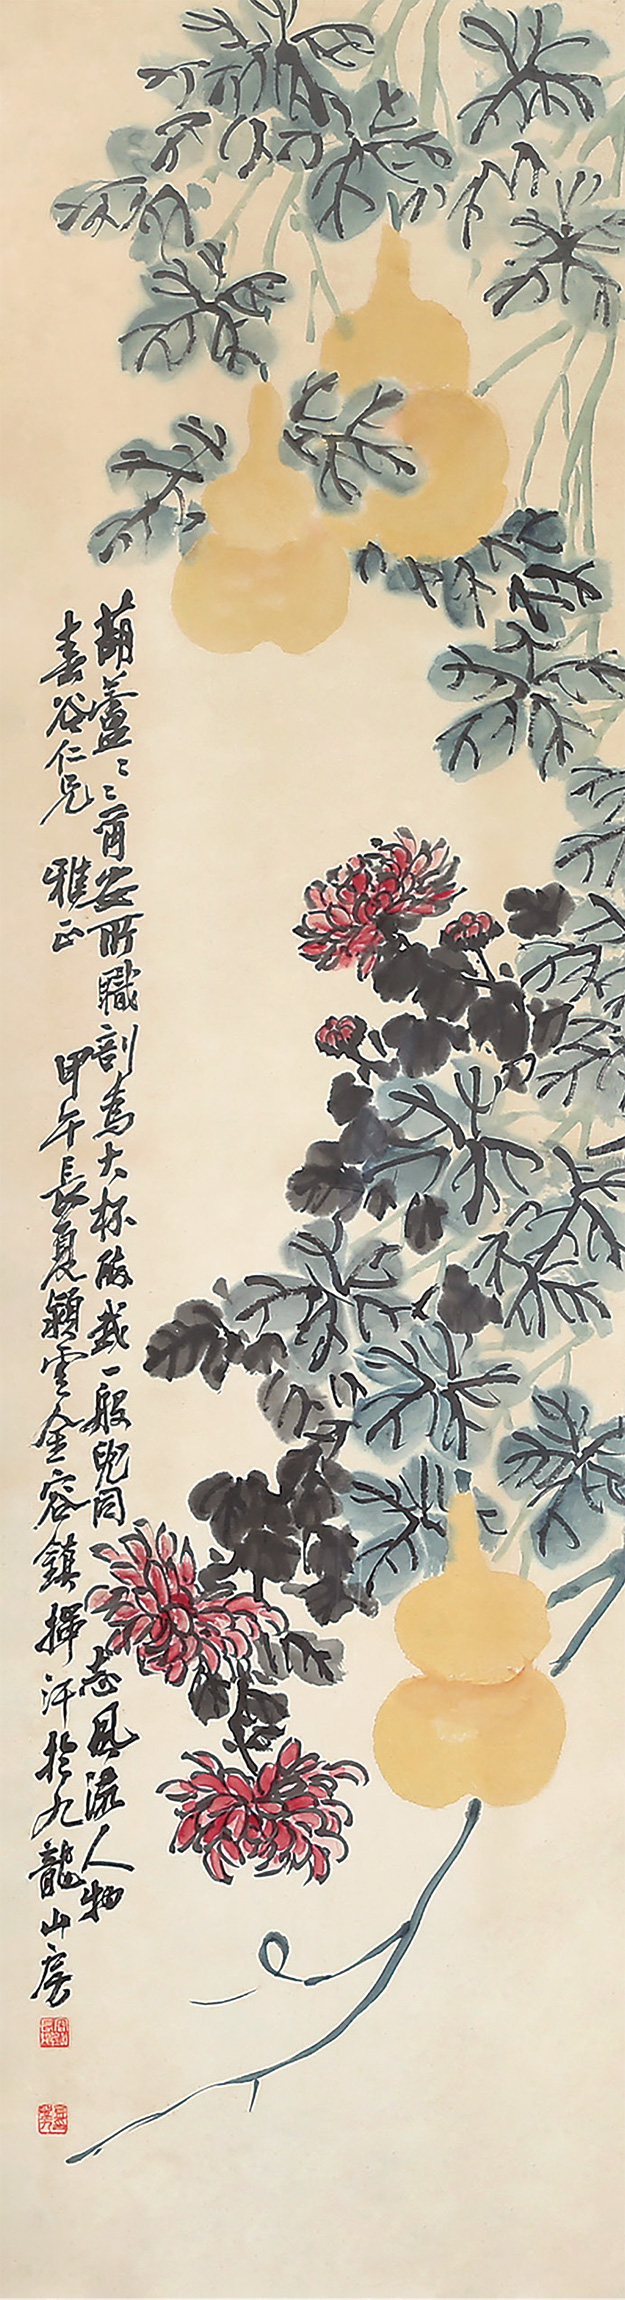 葫蘆〻〻爾安所職剖為大杯一般同志風流人物
春谷仁兄 雅正 甲午長夏穎雲金容鎮揮汗於九龍山房